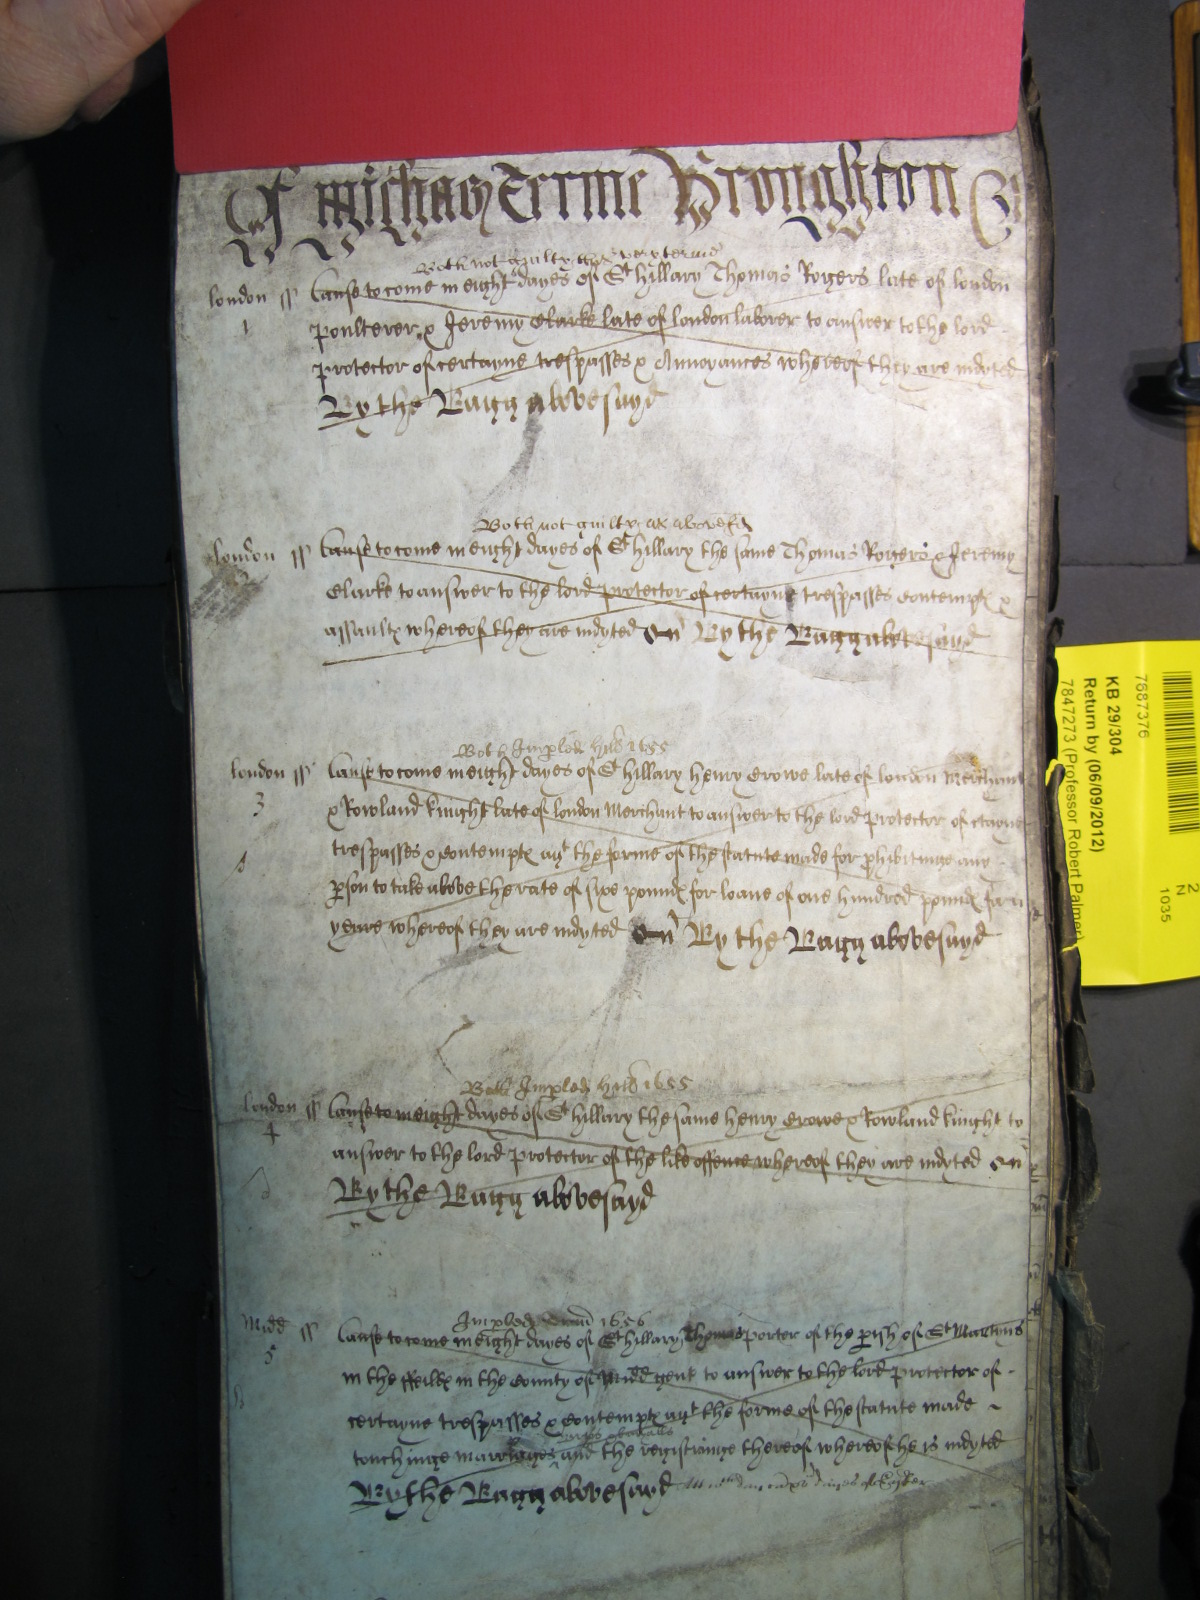 Of Michas Terme Broughton
Both not guilty this very terme
London ss Cause to come in eight dayes of St Hillary Thomas Rogers late of London
1
Poulterer & Jeremy Clarke late of London laborer to answer to the lord
Protector of certayne trespasses & Annoyances whereof they are indyted
By the Bagg abovesayd
Both not guilty as abovesd
London ss Cause to come in eight dayes of St Hillary the same Thomas Rogers & Jeremy
2
Clarke to answer to the lord Protector of certayne trespasses contempts &
assaults whereof they are indyted By the Bagg abovesayd
Both Impled Hill 1655
London ss Cause to come in eight dayes of St Hillary Henry Crowe late of London Merchant
3
& Rowland Knight late of London Merchant to answer to the lord Protector of ctayne
trespasses & contempts agt the forme of the statute made for phibitinge any
pson to take above the rate of sixe pounds for loane of one hundred pounds for a
yeare whereof they are indyted By the Bagg abovesayd
Both Impled Hill 1655
London ss Cause to in eight dayes of St Hillary the same Henry Crowe & Rowland Knight to
4
answer to the lord Protector of the like offence whereof they are indyted
By the Bagg abovesayd
Impled 1656
Midd ss Cause to come in eight dayes of St Hillary Thomas Porter of the pish of St Martins
5
in the ffeilds in the County of Midd gent to answer to the lord Protector of
certayne trespasses & contempts agt the forme of the statute made
touchinge marriages and the registringe thereof whereof he is indyted
By the Bagg abovesayd
7687376
KB 29/304
Return by (06/09/2012)
7847273 (Professor Robert Palmer)
2
N
1035